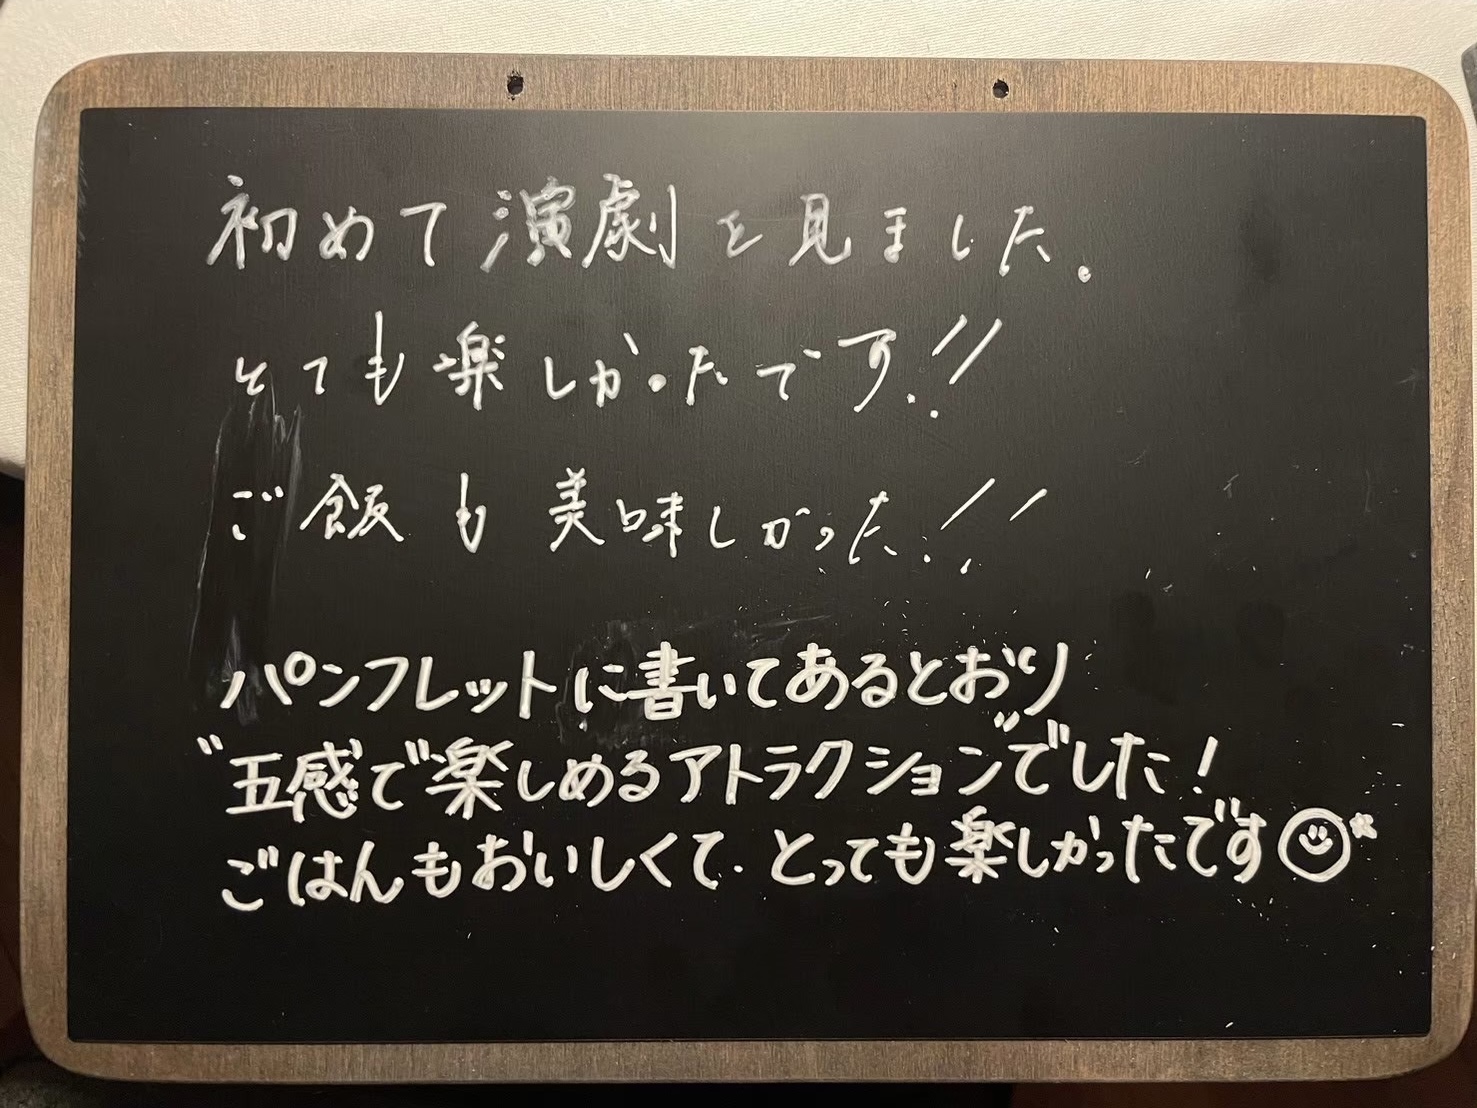 初めて演劇を見ました。
とても楽しかったです!!
ご飯も美味しかった!!
パンフレットに書いてあるとおり
"五感で楽しめるアトラクション"でした!
ごはんもおいしくて、とっても楽しかったです